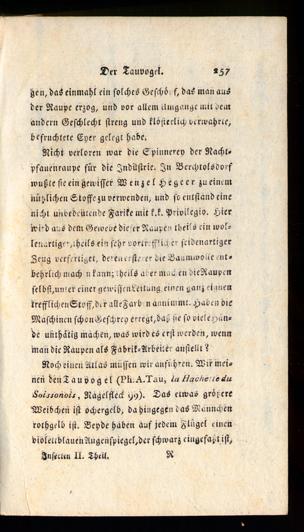 Der Tauvogel. 257
gen, das einmahl ein solches Geschöpf, das man aus
der Raupe erzog, und vor allem Umgange mit dem
andern Geschlecht streng und klösterlich verwahrte,
befruchtete Eyer gelegt habe.
Nicht verloren war die Spinnerey der Nacht-
pfauenraupe für die Indüstrie. In Berchtolsdorf
wußte sie ein gewisser Wenzel Hegeer zu einem
nützlichen Stoffe zu verwenden, und so entstand eine
nicht unbedeutende Farike mit k.k. Privilegio. Hier
wird aus dem Gewebe dieser Raupen theils ein wol-
lenartiger, theils ein sehr vortrefflicher seidenartiger
Zeug verfertiget, deren ersterer die Baumwolle ent-
behrlich machen kann; theils aber machen die Raupen
selbst, unter einer gewissen Leitung einen ganz eignen
trefflichen Stoff, der alle Farben annimmt. Haben die
Maschinen schon Geschrey erregt, daß sie so viele Hän-
de unthätig machen, was wird es erst werden, wenn
man die Raupen als Fabrik-Arbeiter anstellt?
Noch einen Atlas müssen wir anführen. Wir mei-
nen den Tauvogel (Ph. A. Tau, la Hachette du
Soissonois, Nagelfleck 99). Das etwas größere
Weibchen ist ochergelb, da hingegen das Männchen
rothgelb ist. Beyde haben auf jedem Flügel einen
violettblauen Augenspiegel, der schwarz eingefaßt ist,
Insecten II. Theil. R